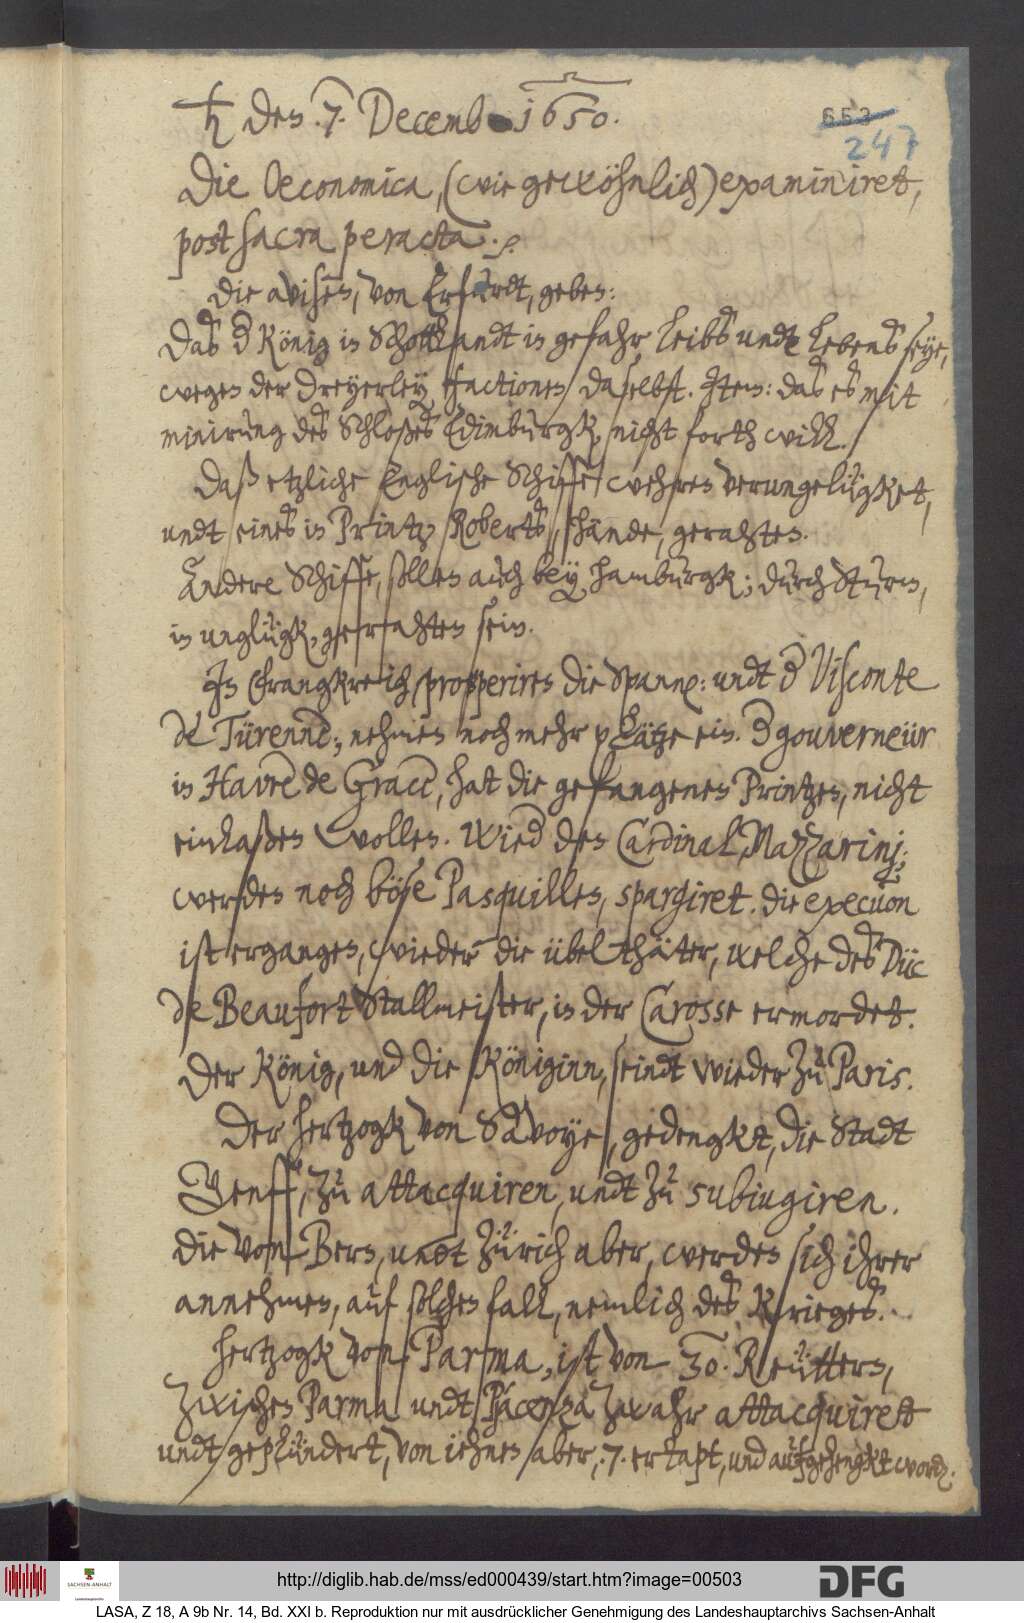 ♄ den .7. Decemb 1650.
663
247
Die Oeconomica, (wie gewöhnlich) examiniret,
post sacra peracta. p.
Die avisen, von Erfurdt, geben:
Das d König in Schottlandt in gefahr leibs undt lebens seye,
wegen der dreyerley factionen daselbst. Item: das es mit
minirung des Schloßes Edimburgk, nicht forth will.
Daß etzliche Englische Schiffe wehren verungelügket,
undt eines in Printz Roberts, hände, gerahten.
Andere Schiffe, sollen auch bey Hamburgk; durch Sturm,
in unglügk, gerahten sein.
In Frangkreich prosperiren die Spann: undt d Visconte
de Türenne; nehmen noch mehr plätze ein. d gouverneur
in Havre de Grace, hat die gefangenen Printzen, nicht
einlaßen wollen. Wied den Cardinal Mazzarinj;
werden noch böse Pasquillen, spargiret. die execution
ist ergangen, wieder die übelthäter, welche des Düc
de Beaufort Stallmeister, in der Carosse ermordet.
Der König, und die Königinn, seindt wieder zu Paris.
Der Hertzogk von Savoye, gedengkt, die Stadt
Genff, zu attacquiren, undt zu subiugiren.
die von Bern, undt Zürich aber, werden sich ihrer
annehmen, auf solchen fall, nemlich des Krieges.
Hertzogk von Parma, ist von 30. Reüttern,
zwischen Parma undt Piacenza zwahr attacquiret
undt geplündert, von iehnen aber, .7. ertapt, und aufgehengkt word.
http://diglib.hab.de/mss/ed000439/start.htm?image=00503
SACHSEN-ANHALT
DFG
LASA, Z 18, A 9b Nr. 14, Bd. XXI b. Reproduktion nur mit ausdrücklicher Genehmigung des Landeshauptarchivs Sachsen-Anhalt